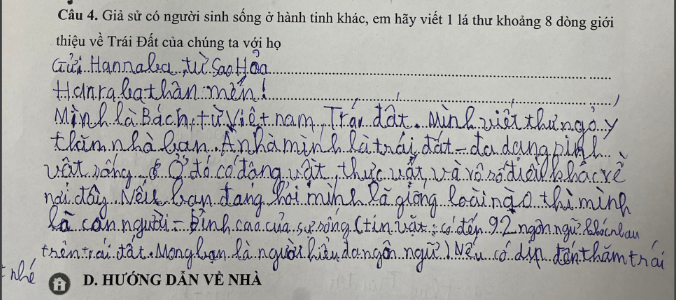 Câu 4. Giả sử có người sinh sống ở hành tinh khác, em hãy viết 1 lá thư khoảng 8 dòng giới
thiệu về Trái Đất của chúng ta với họ
Gửi Hannaba, từ Sao Hỏa
Hanraba thân mến!
Mình là Bách, từ Việt nam, Trái đất. Mình viết thư ngỏ ý
thăm nhà bạn. Ở nhà mình là trái đất - đa dạng sinh
vật sống. Ở đó có động vật, thực vật, và vô số điều khác về
nơi đây. Nếu bạn đang hỏi mình là giống loài nào thì mình
là con người - Đỉnh cao của sự sống (tin vặt: có đến 92 ngôn ngữ khác nhau
trên trái đất. Mong bạn là người hiểu đa ngôn ngữ) Nếu có dịp đến thăm trái
t nhé
D. HƯỚNG DẪN VỀ NHÀ